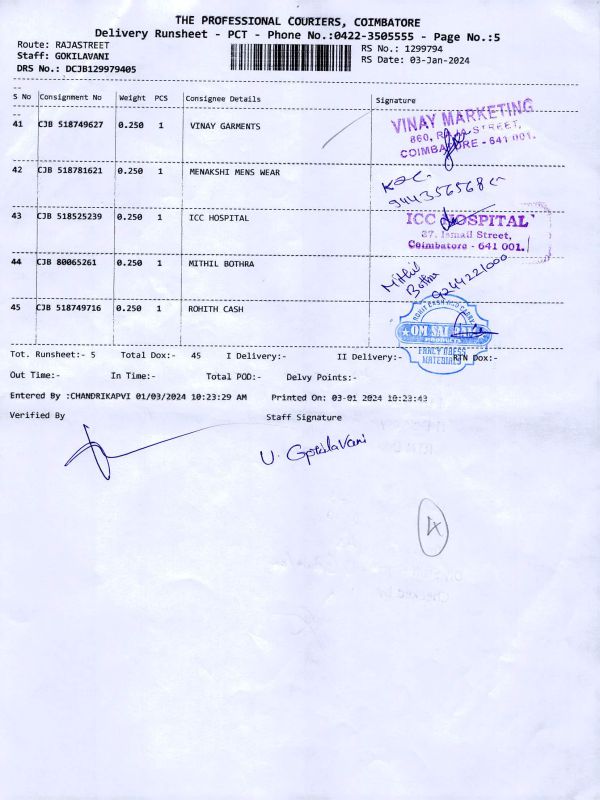 THE PROFESSIONAL COURIERS, COIMBATORE
Delivery Runsheet - PCT - Phone No.:0422-3505555 - Page No.:5
Route: RAJASTREET
RS No.: 1299794
Staff: GOKILAVANI
RS Date: 03-Jan-2024
DRS No.: DCJB129979405
S No Consignment No Weight PCS Consignee Details Signature
41 CJB 518749627 0.250 1 VINAY GARMENTS
VINAY MARKETING
COIMBATORE - 641 001.
42 CJB 518781621 0.250 1 MENAKSHI MENS WEAR
43 CJB 518525239 0.250 1 ICC HOSPITAL
ICC HOSPITAL
37. Ismail Street,
Coimbatore - 641 001.
44 CJB 80065261 0.250 1 MITHIL BOTHRA
Mithil
Bothra
9244221000
45 CJB 518749716 0.250 1 ROHITH CASH
PRODUCTS
FANCY DRESS
MATERIALS
Tot. Runsheet:- 5 Total Dox:- 45 I Delivery:- II Delivery:- RTN Dox:-
Out Time:- In Time:- Total POD:- Delvy Points:-
Entered By :CHANDRIKAPVI 01/03/2024 10:23:29 AM Printed On: 03-01 2024 10:23:43
Verified By Staff Signature
U. Gokilavani
4